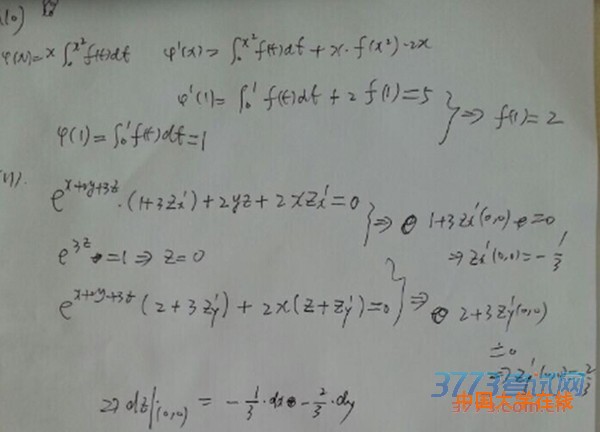 (10)
φ(x)=x∫₀^{x²}f(t)dt φ'(x)=∫₀^{x²}f(t)dt+x·f(x²)·2x
φ'(1)=∫₀¹f(t)dt+2f(1)=5
φ(1)=∫₀¹f(t)dt=1
} ⇒ f(1)=2
(11).
e^{x+2y+3z}·(1+3z'ₓ)+2yz+2xz'ₓ=0
e^{3z}=1⇒z=0
} ⇒ 1+3z'ₓ(0,0)=0
⇒z'ₓ(0,0)=-1/3
e^{x+2y+3z}(2+3z'y)+2x(z+z'y)=0
} ⇒ 2+3z'y(0,0)
=0
⇒z'y(0,0)=-2/3
⇒dz|(0,0) = -1/3·dx-2/3·dy
3773考试网